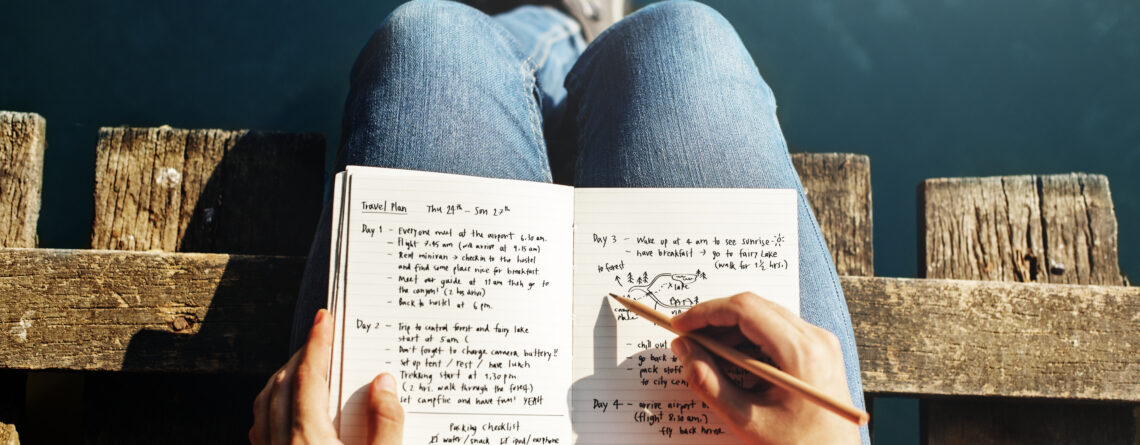 Travel Plan Thu 24th - Sun 27th
Day 1 - Everyone must at the airport 6.30 am.
- Flight 7.45 am (will arrive at 9.15 am)
- Rent minivan → check in to the hostel
and find some place nice for breakfast.
- Meet our guide at 11 am then go to
the canyon! (2 hrs drive)
- Back to hostel at 6 pm.
Day 2 - Trip to central forest and fairy lake
start at 5 am (
- Don't forget to charge camera battery!!
- Set up tent / rest / have lunch
Trekking start at 1.30 pm
(2 hrs. walk through the forest)
set campfire and have fun! YEAH
Packing Checklist
water/snack ipod/earphone
Day 3 - Wake up at 4 am to see sunrise
- have breakfast → go to fairy Lake
(walk for 1 1/2 hrs.)
to forest
lake
- chill out
- go back
- pack stuff
to city
Day 4 - arrive airport
(flight 8.30 am.)
fly back home